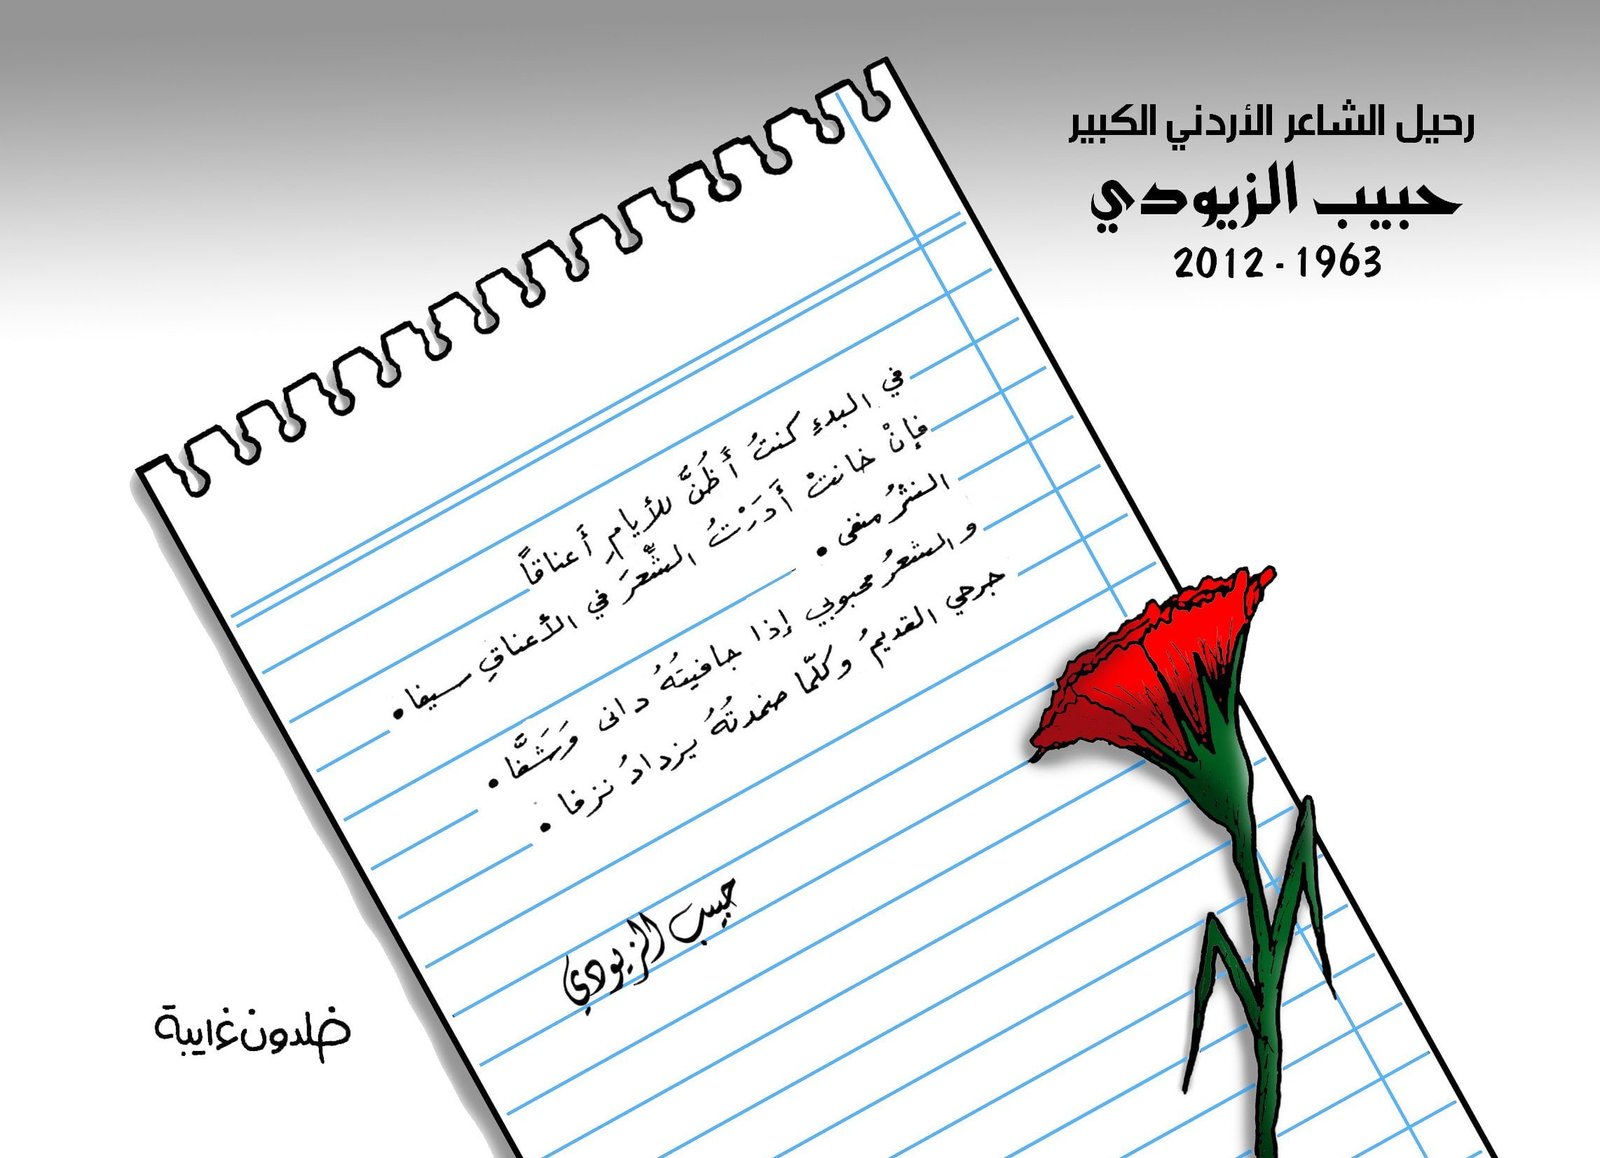 رحيل الشاعر الأردني الكبير
حبيب الزيودي
1963 - 2012
في البدءِ كنتُ أَظُنَّ للأيامِ أَعناقاً
فإنْ خانتْ أَدَرْتُ الشِّعرَ في الأعناقِ سيفا.
النثرُ منفى.
والشعرُ محبوبي إذا جافيتُهُ دانى وَشَفَّا.
جرحي القديمُ وكلّما ضمدتُهُ يزدادُ نزفا.
حبيب الزيودي
خلدون غرايبة